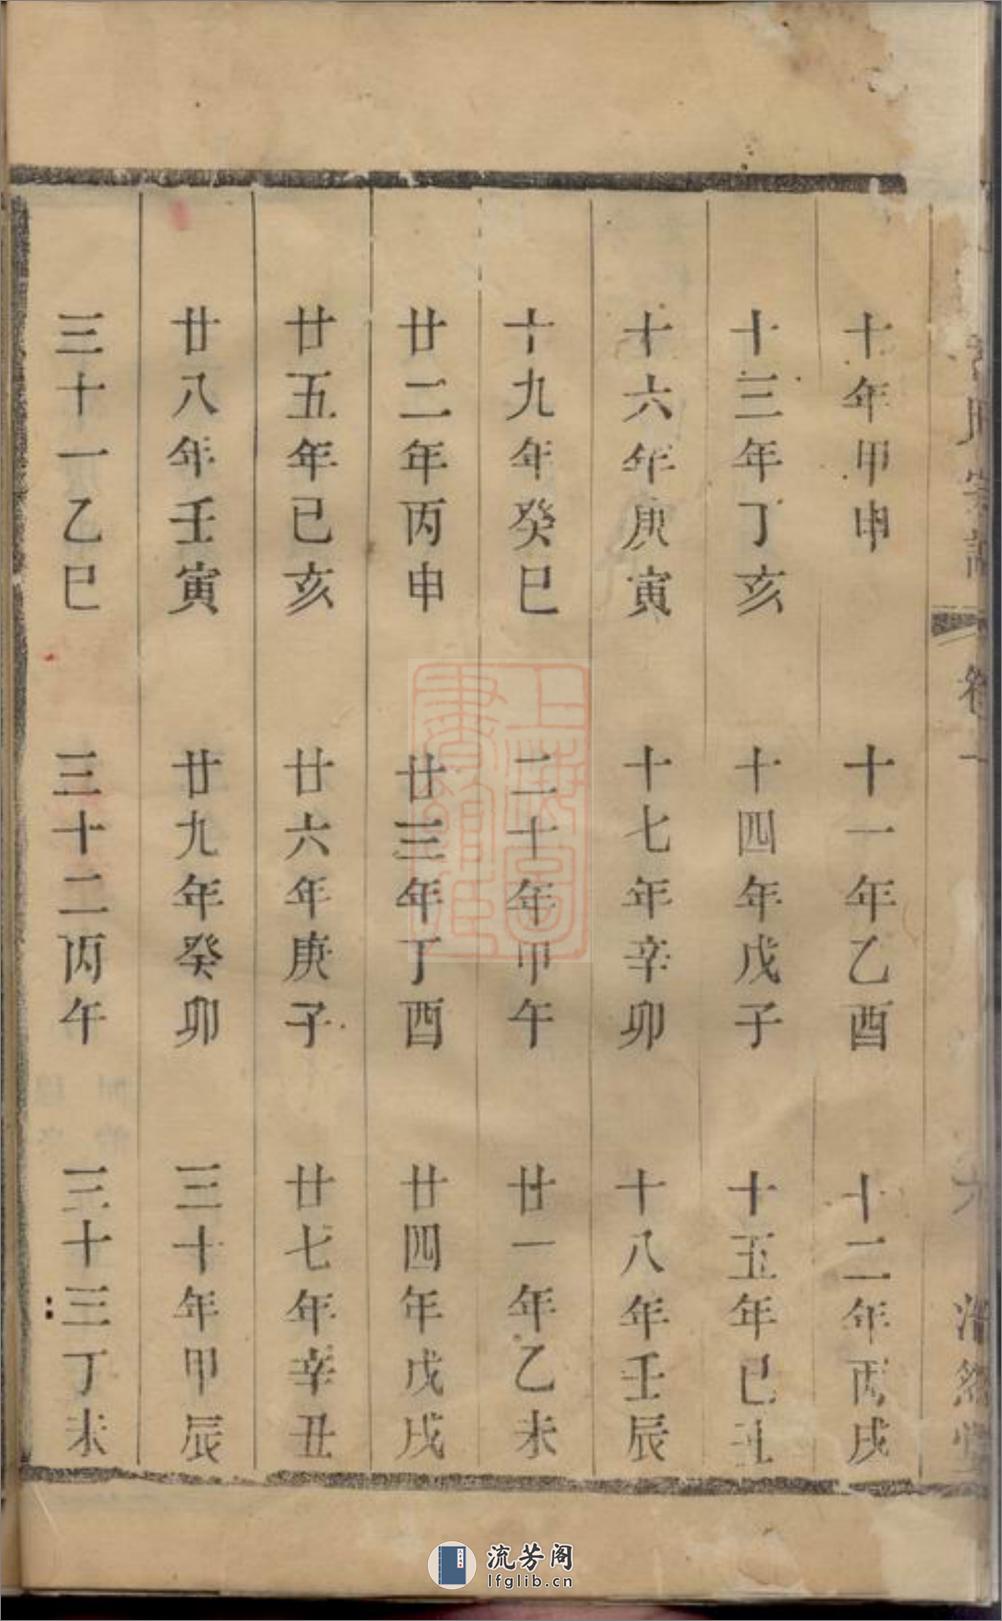 卷一
六
浩然堂
十年甲申 十一年乙酉 十二年丙戌
十三年丁亥 十四年戊子 十五年己丑
十六年庚寅 十七年辛卯 十八年壬辰
十九年癸巳 二十年甲午 廿一年乙未
廿二年丙申 廿三年丁酉 廿四年戊戌
廿五年己亥 廿六年庚子 廿七年辛丑
廿八年壬寅 廿九年癸卯 三十年甲辰
三十一乙巳 三十二丙午 三十三丁未
上海圖書館藏
流芳阁
lfglib.cn